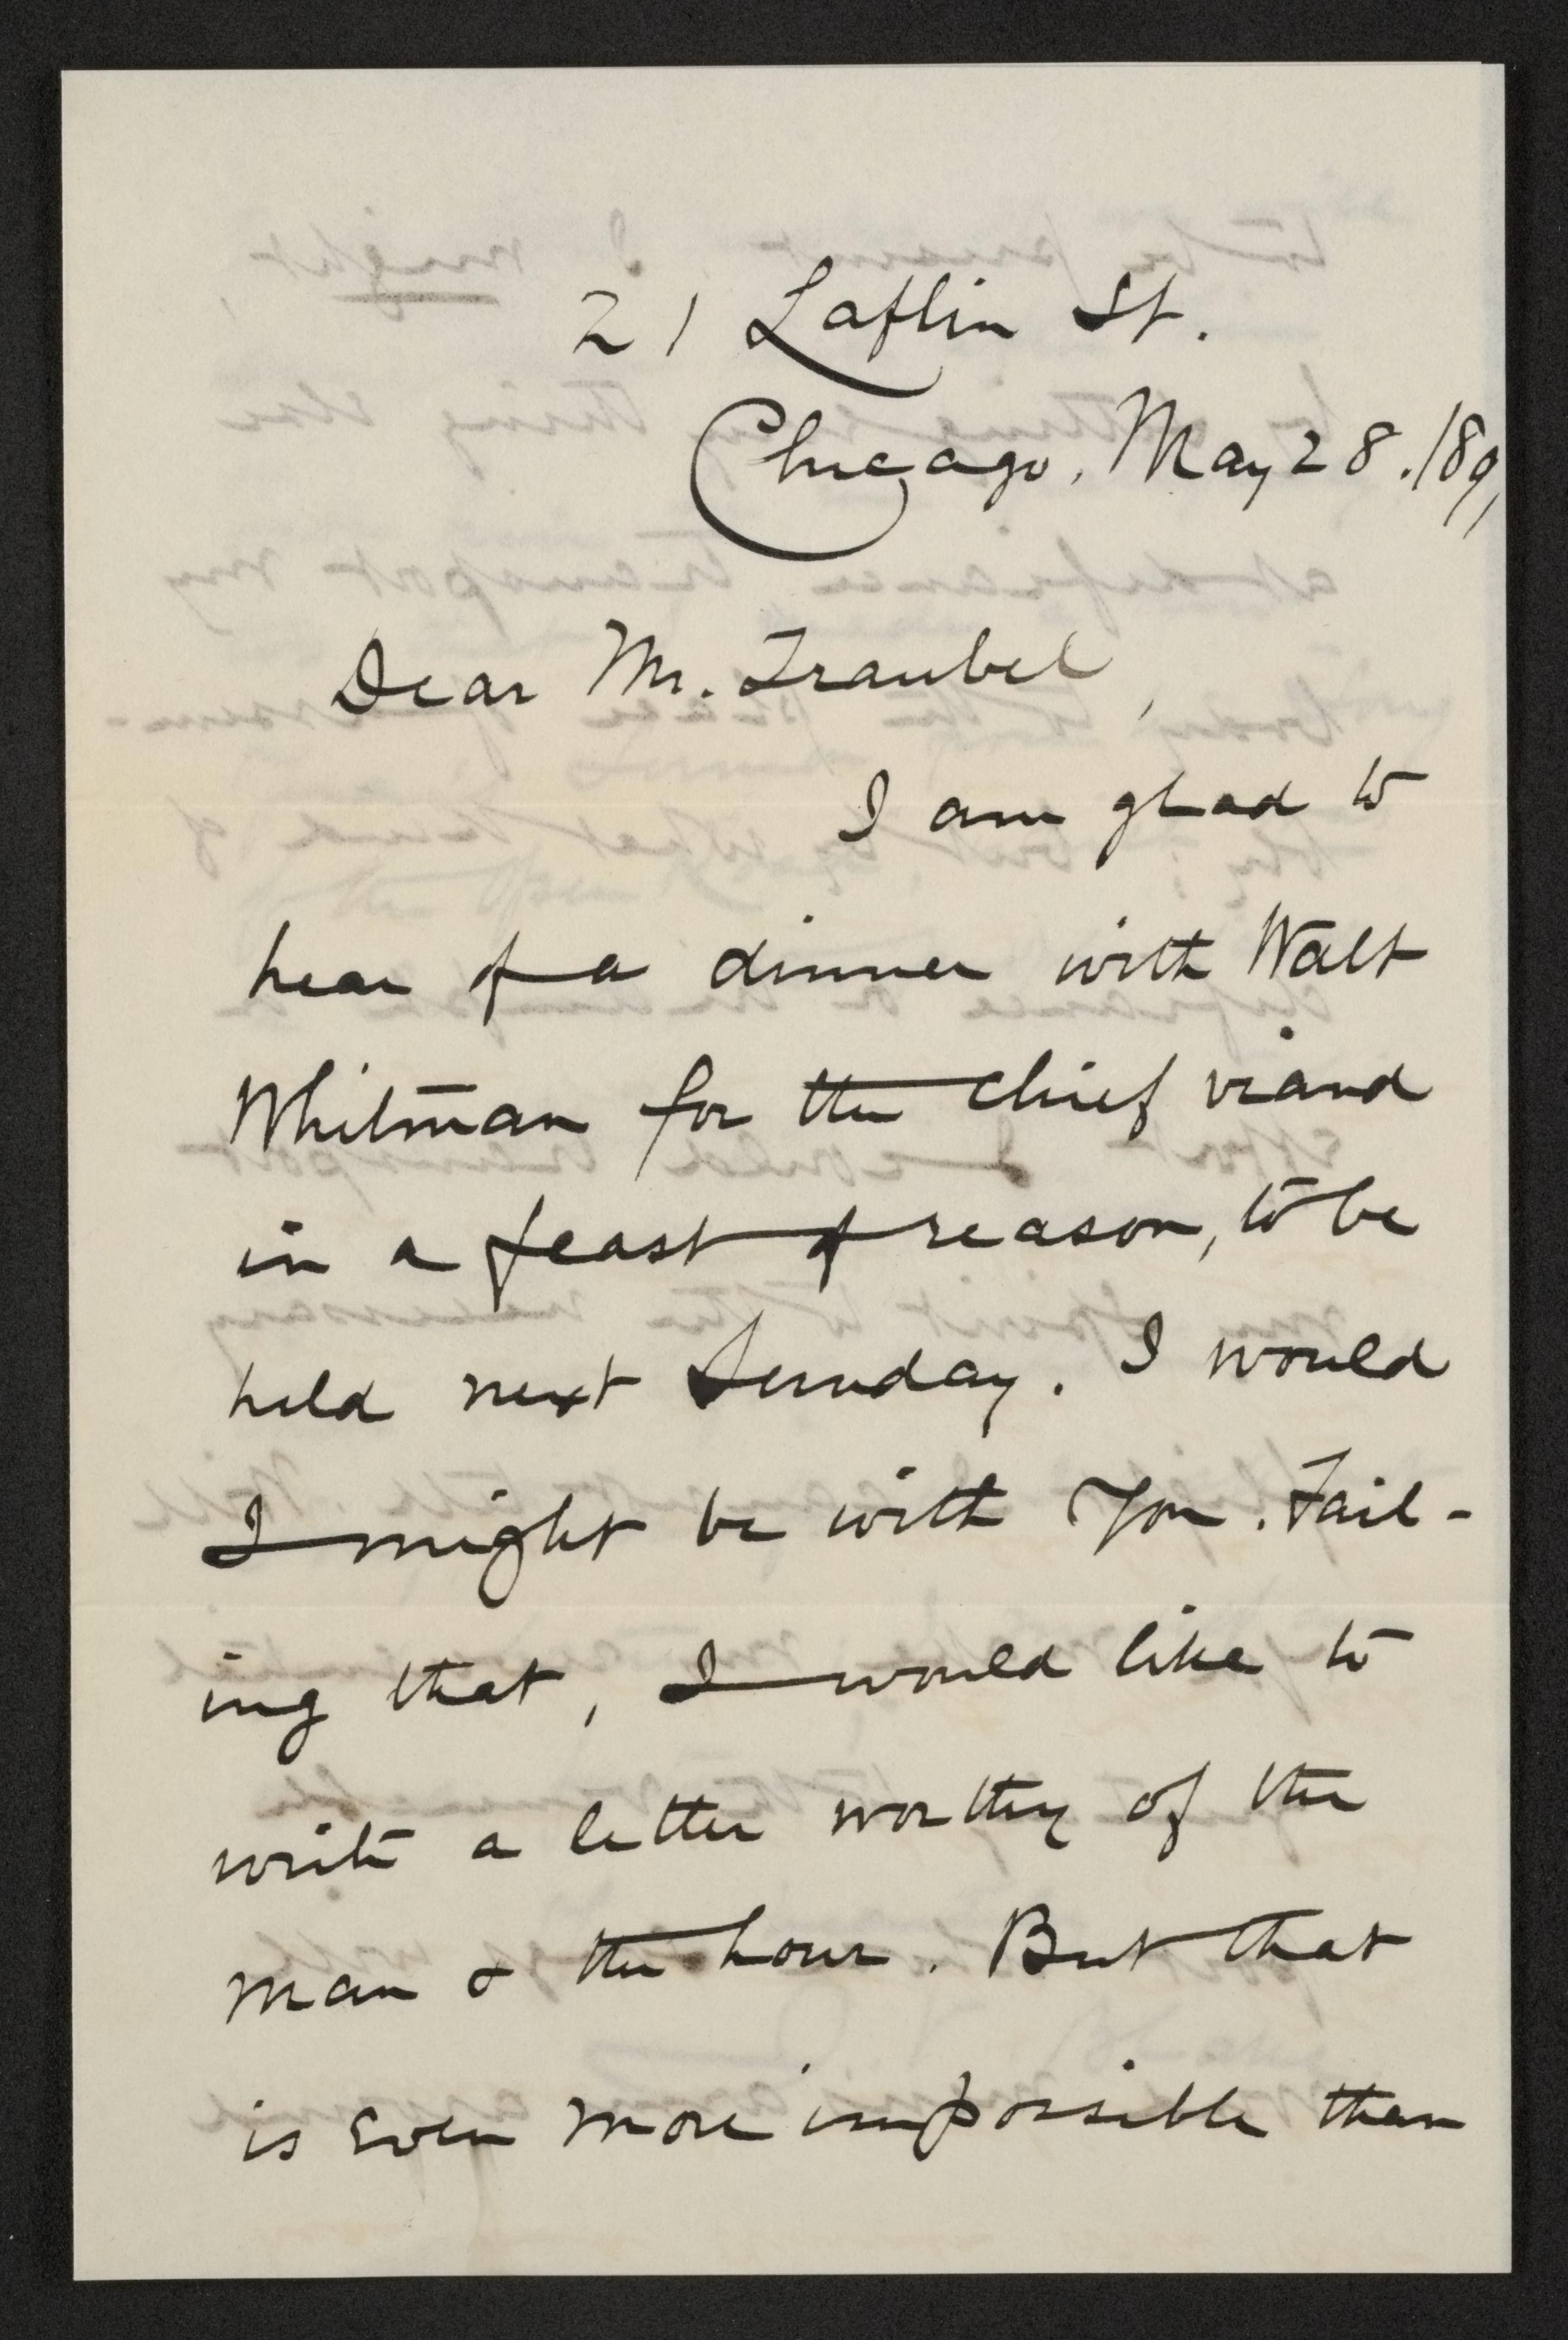 21 Laflin St.
Chicago, May 28. 1891
Dear Mr. Traubel,
I am glad to
hear of a dinner with Walt
Whitman for the chief viand
in a feast of reason, to be
held next Sunday. I would
I might be with you. Fail-
ing that, I would like to
write a letter worthy of the
man & the hour. But that
is even more impossible than